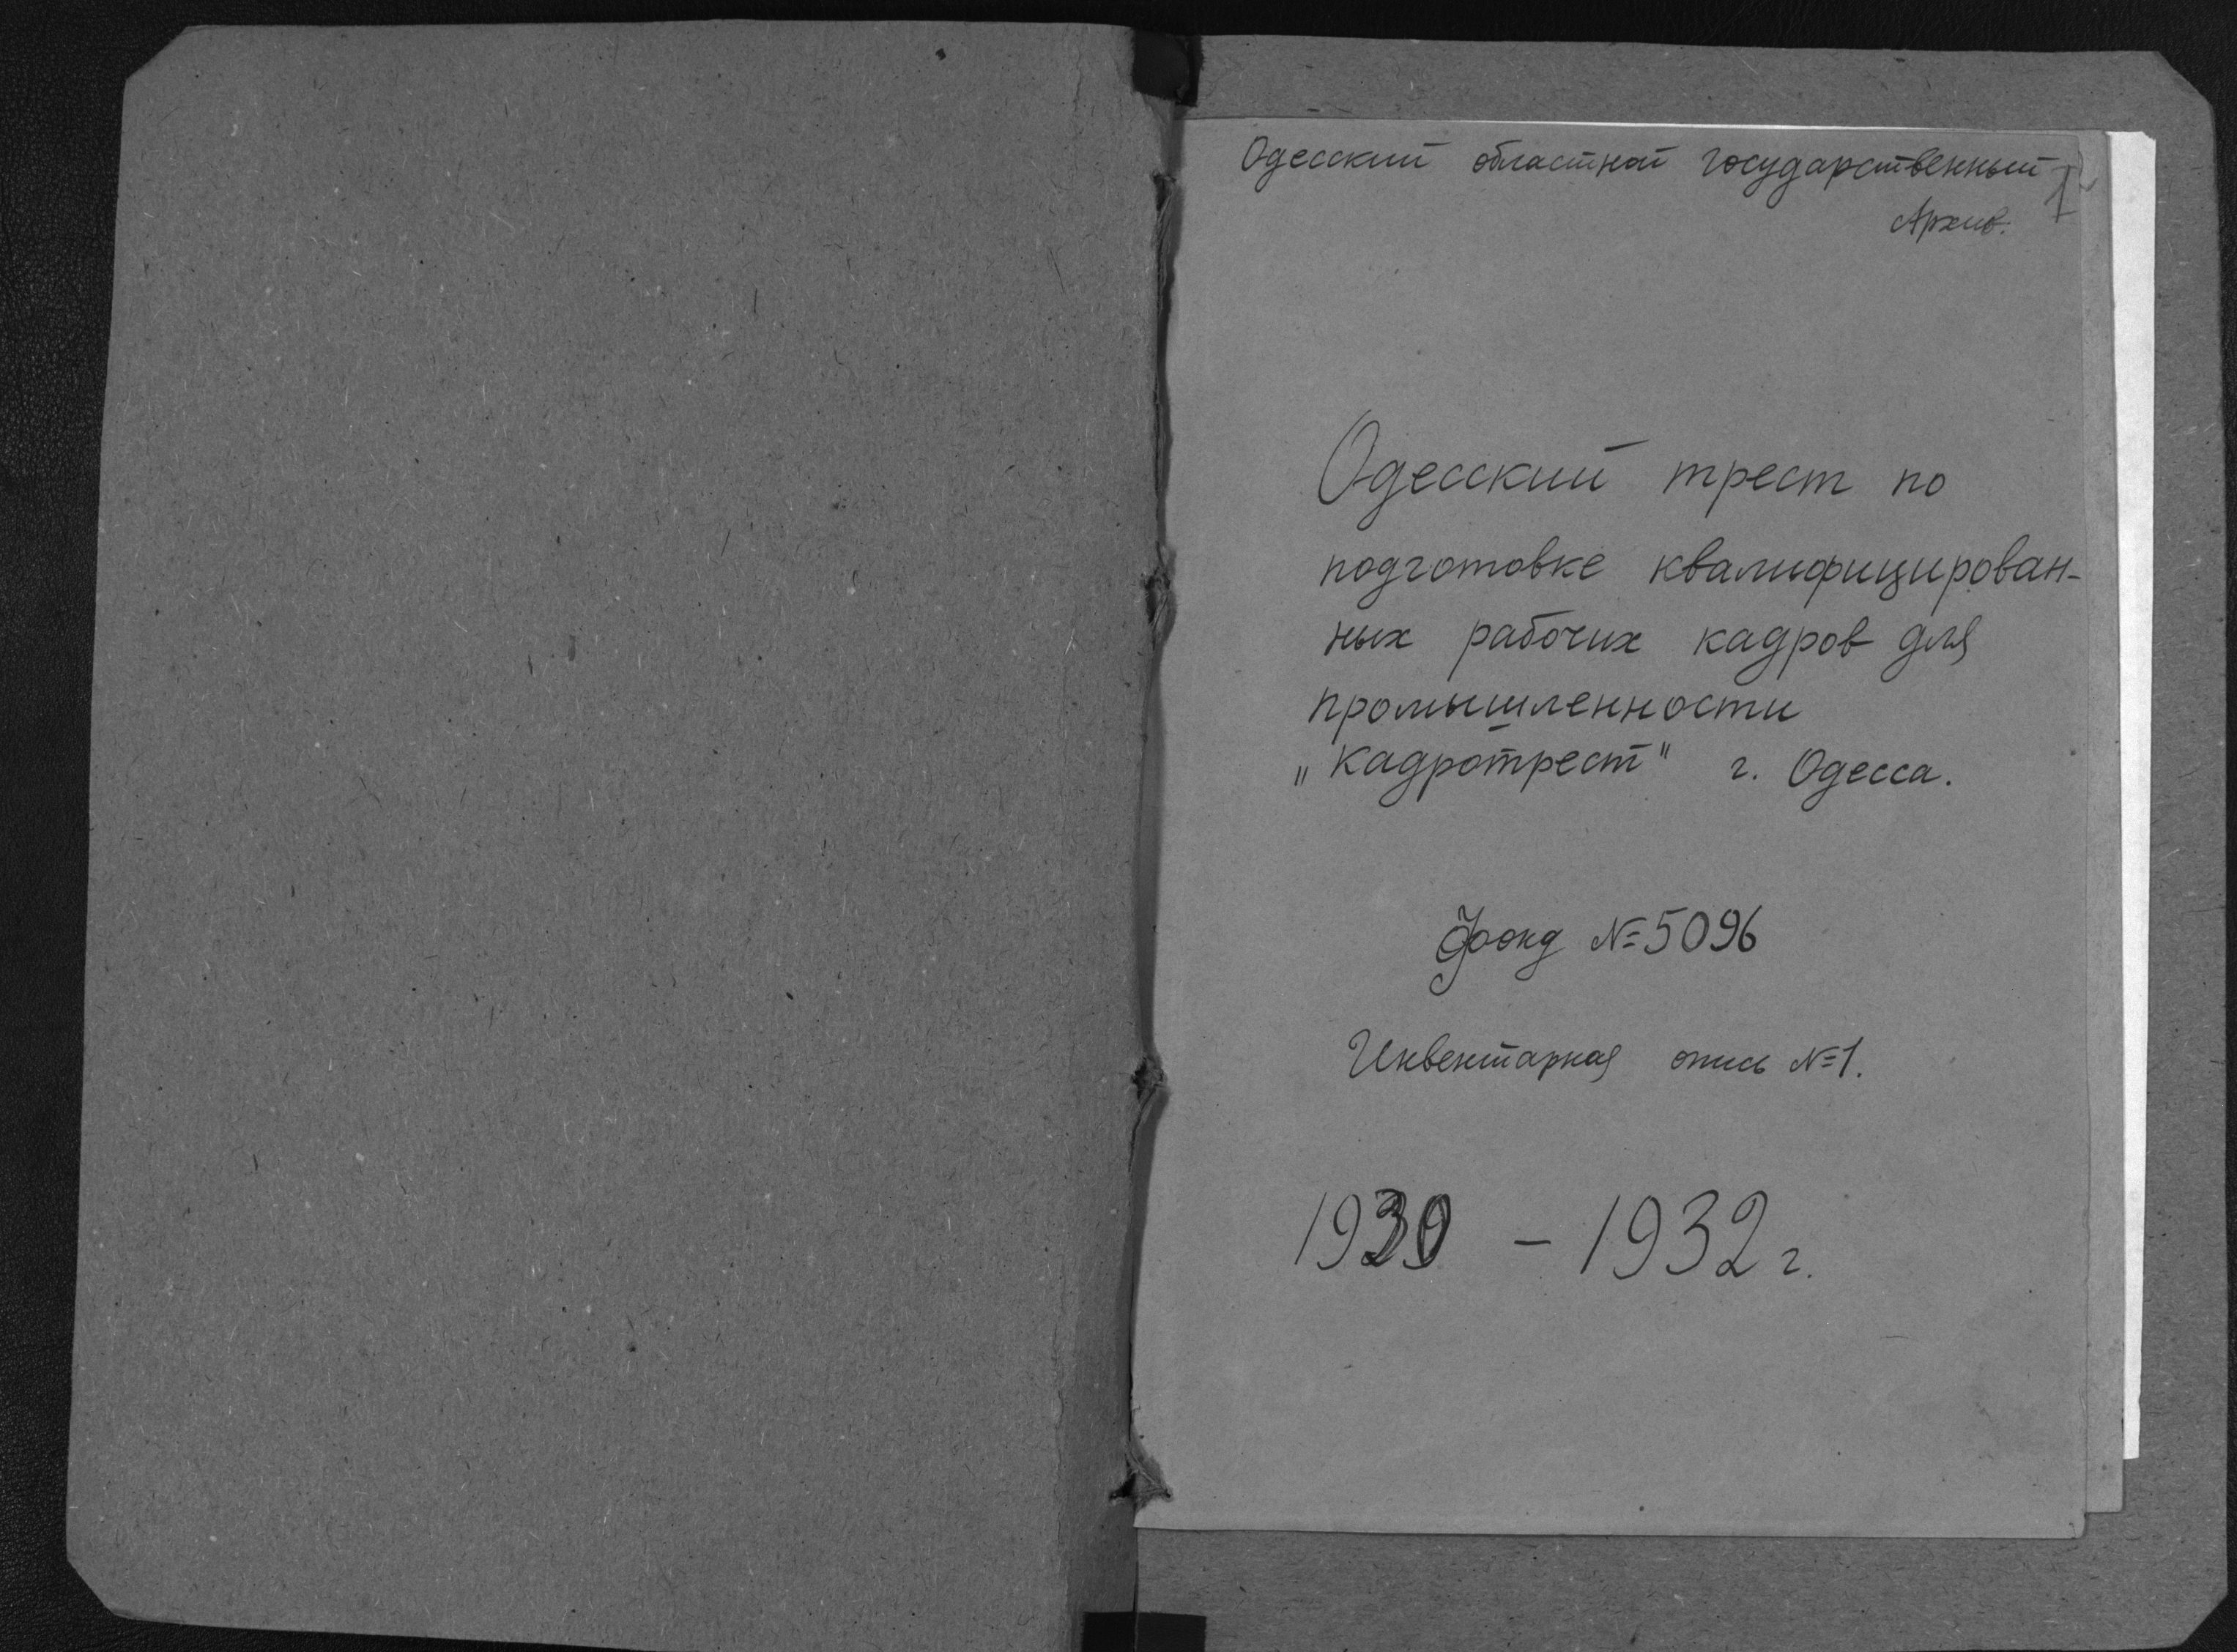 Одесский областной государственный
Архив.
1
Одесский трест по
подготовке квалифицирован-
ных рабочих кадров для
промышленности
„Кадротрест" г. Одесса.
Фонд №5096
Инвентарная опись №1.
1930 - 1932 г.